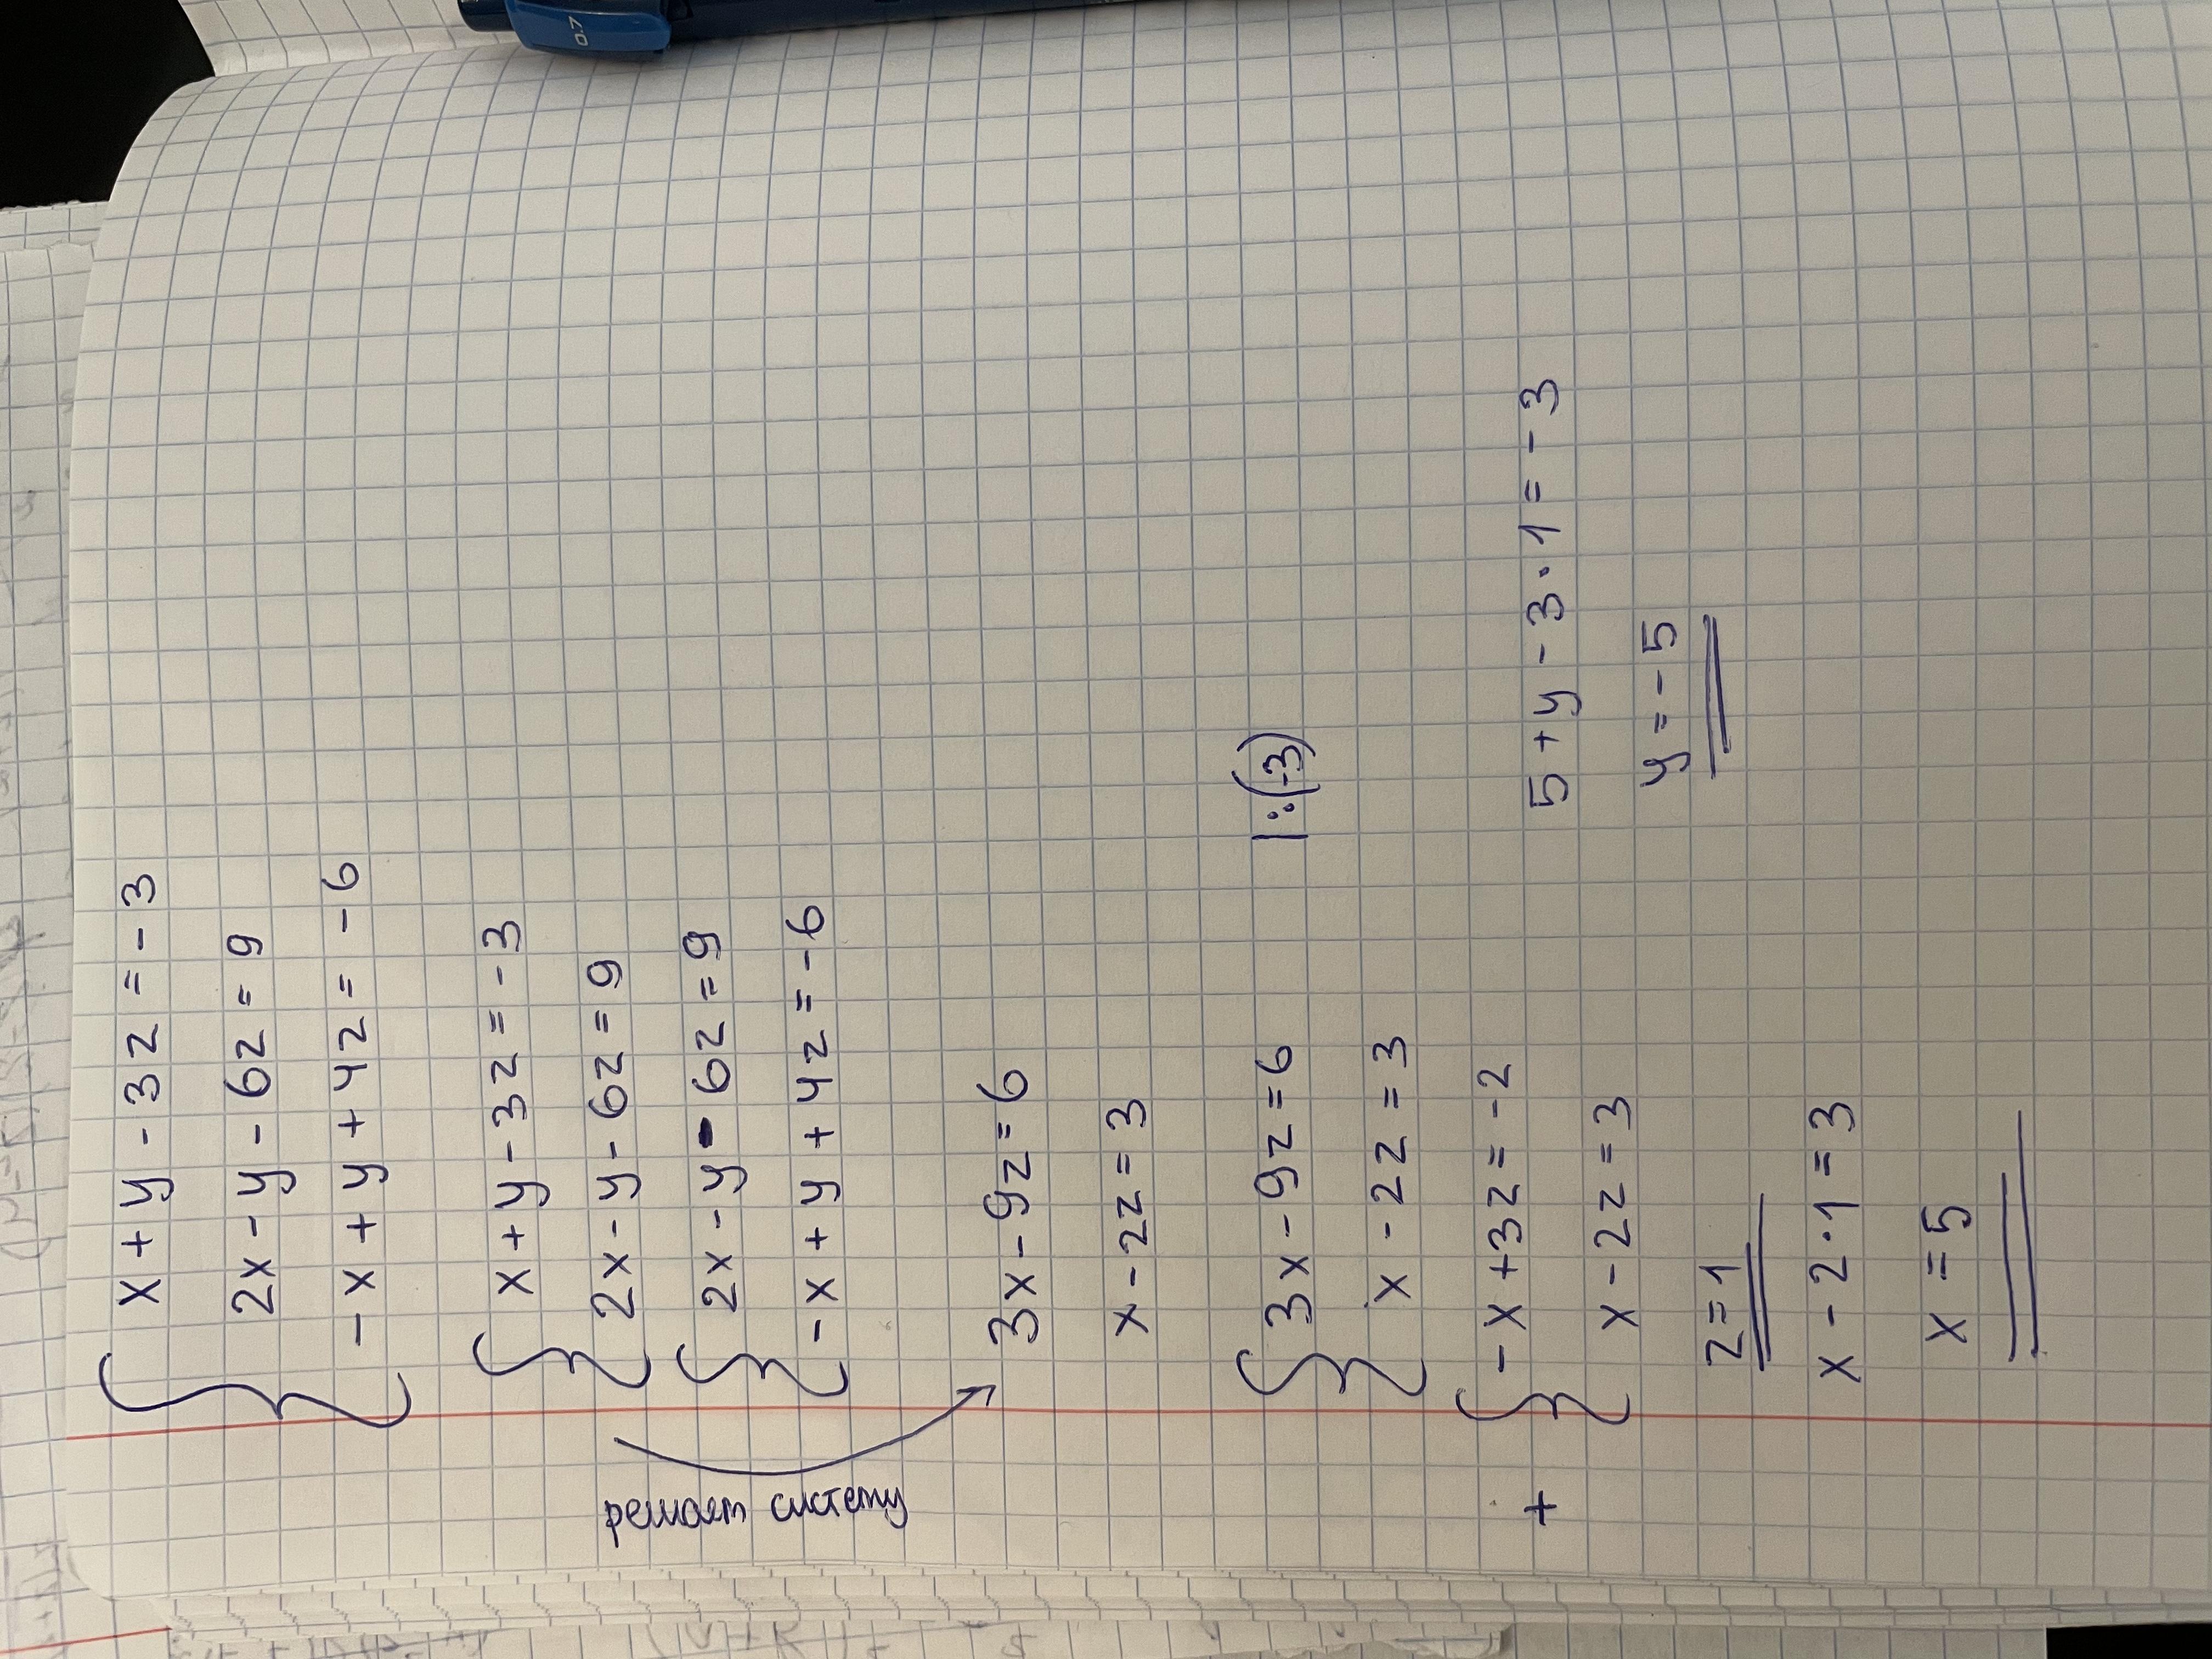 x + y - 3z = -3
2x - y - 6z = 9
-x + y + 4z = -6
x + y - 3z = -3
2x - y - 6z = 9
2x - y - 6z = 9
-x + y + 4z = -6
решаем систему
3x - 9z = 6
x - 2z = 3
3x - 9z = 6 |:(-3)
x - 2z = 3
+
-x + 3z = -2
x - 2z = 3
z = 1
x - 2·1 = 3
x = 5
5 + y - 3·1 = -3
y = -5
0.7